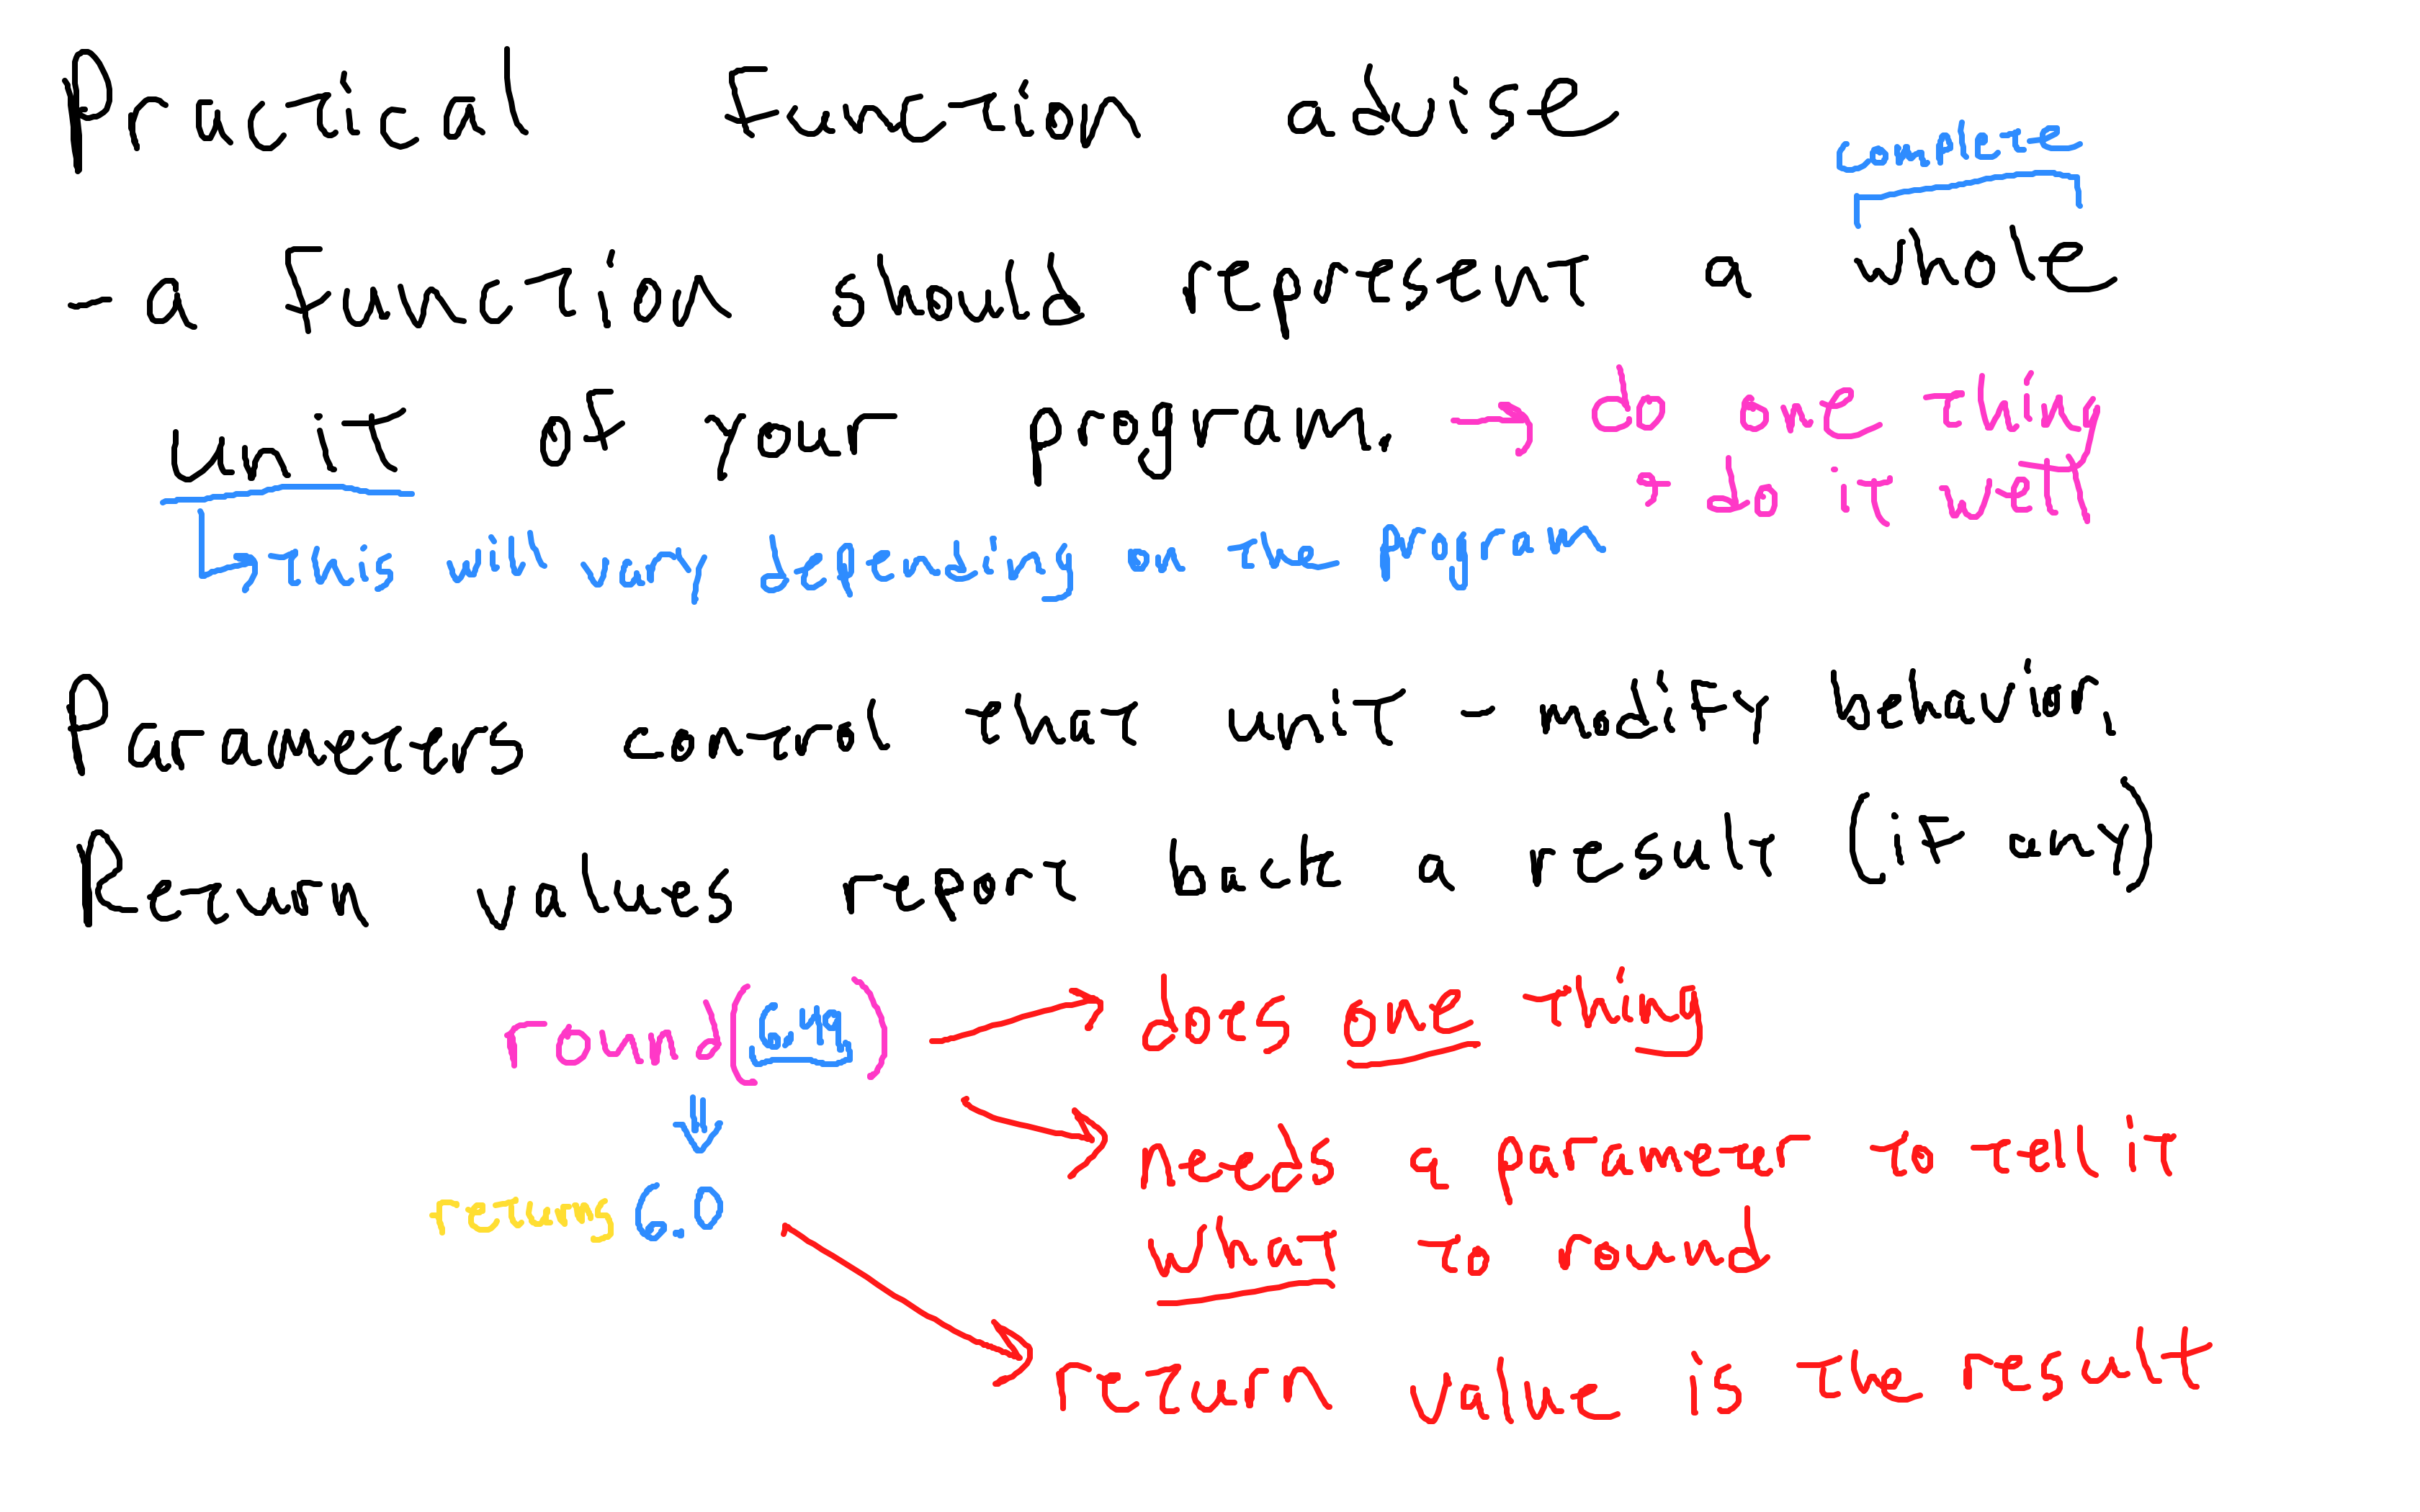 Practical function advise
complete
- a function should represent a whole
unit of your program. → do one thing
+ do it well
this will vary depending on the program
Parameters control that unit - modify behavior.
Return values report back a result (if any)
round(6.49) → does one thing
needs a parameter to tell it
what to round
returns 6.0
return value is the result